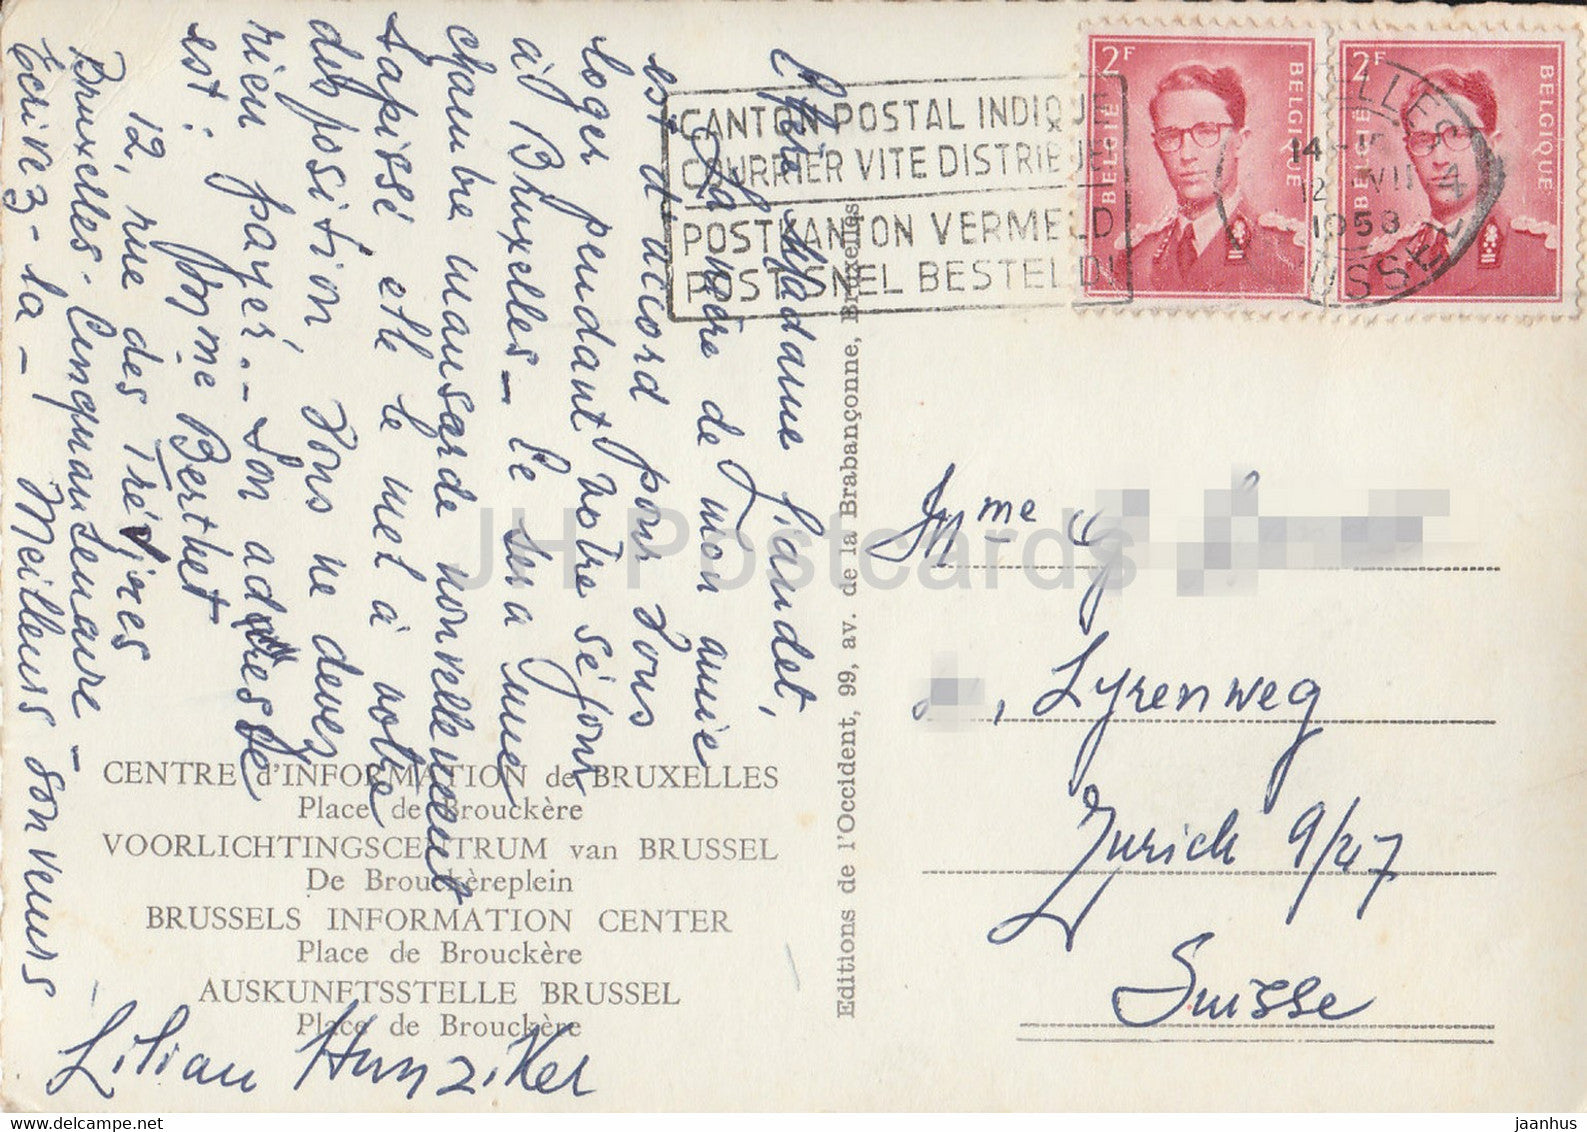 Chère Madame Jeandet,
La mère de mon amie
est d'accord pour vous
loger pendant votre séjour
à Bruxelles - Ce sera une
chambre mansarde nouvellement
tapissé et le met à votre
disposition, vous ne devez
rien payer. - Son adresse
est : Mme Berthet
12, rue des Ménapiens
Bruxelles - Cinquantenaire -
Ecrivez-la - Meilleurs souvenirs
Lilian Hunziker
CENTRE d'INFORMATION de BRUXELLES
Place de Brouckère
VOORLICHTINGSCENTRUM van BRUSSEL
De Brouckèreplein
BRUSSELS INFORMATION CENTER
Place de Brouckère
AUSKUNFTSSTELLE BRUSSEL
Place de Brouckère
Editions de l'Occident, 99, av. de la Brabançonne, Bruxelles
CANTON POSTAL INDIQUE
COURRIER VITE DISTRIBUE
POSTKANTON VERMELD
POST SNEL BESTELD!
2F BELGIE BELGIQUE
2F BELGIE BELGIQUE
12 VII
1958
Mme G
, Lyrenweg
Zurich 9/47
Suisse
JH Postcards
www.delcampe.net
jaanhus